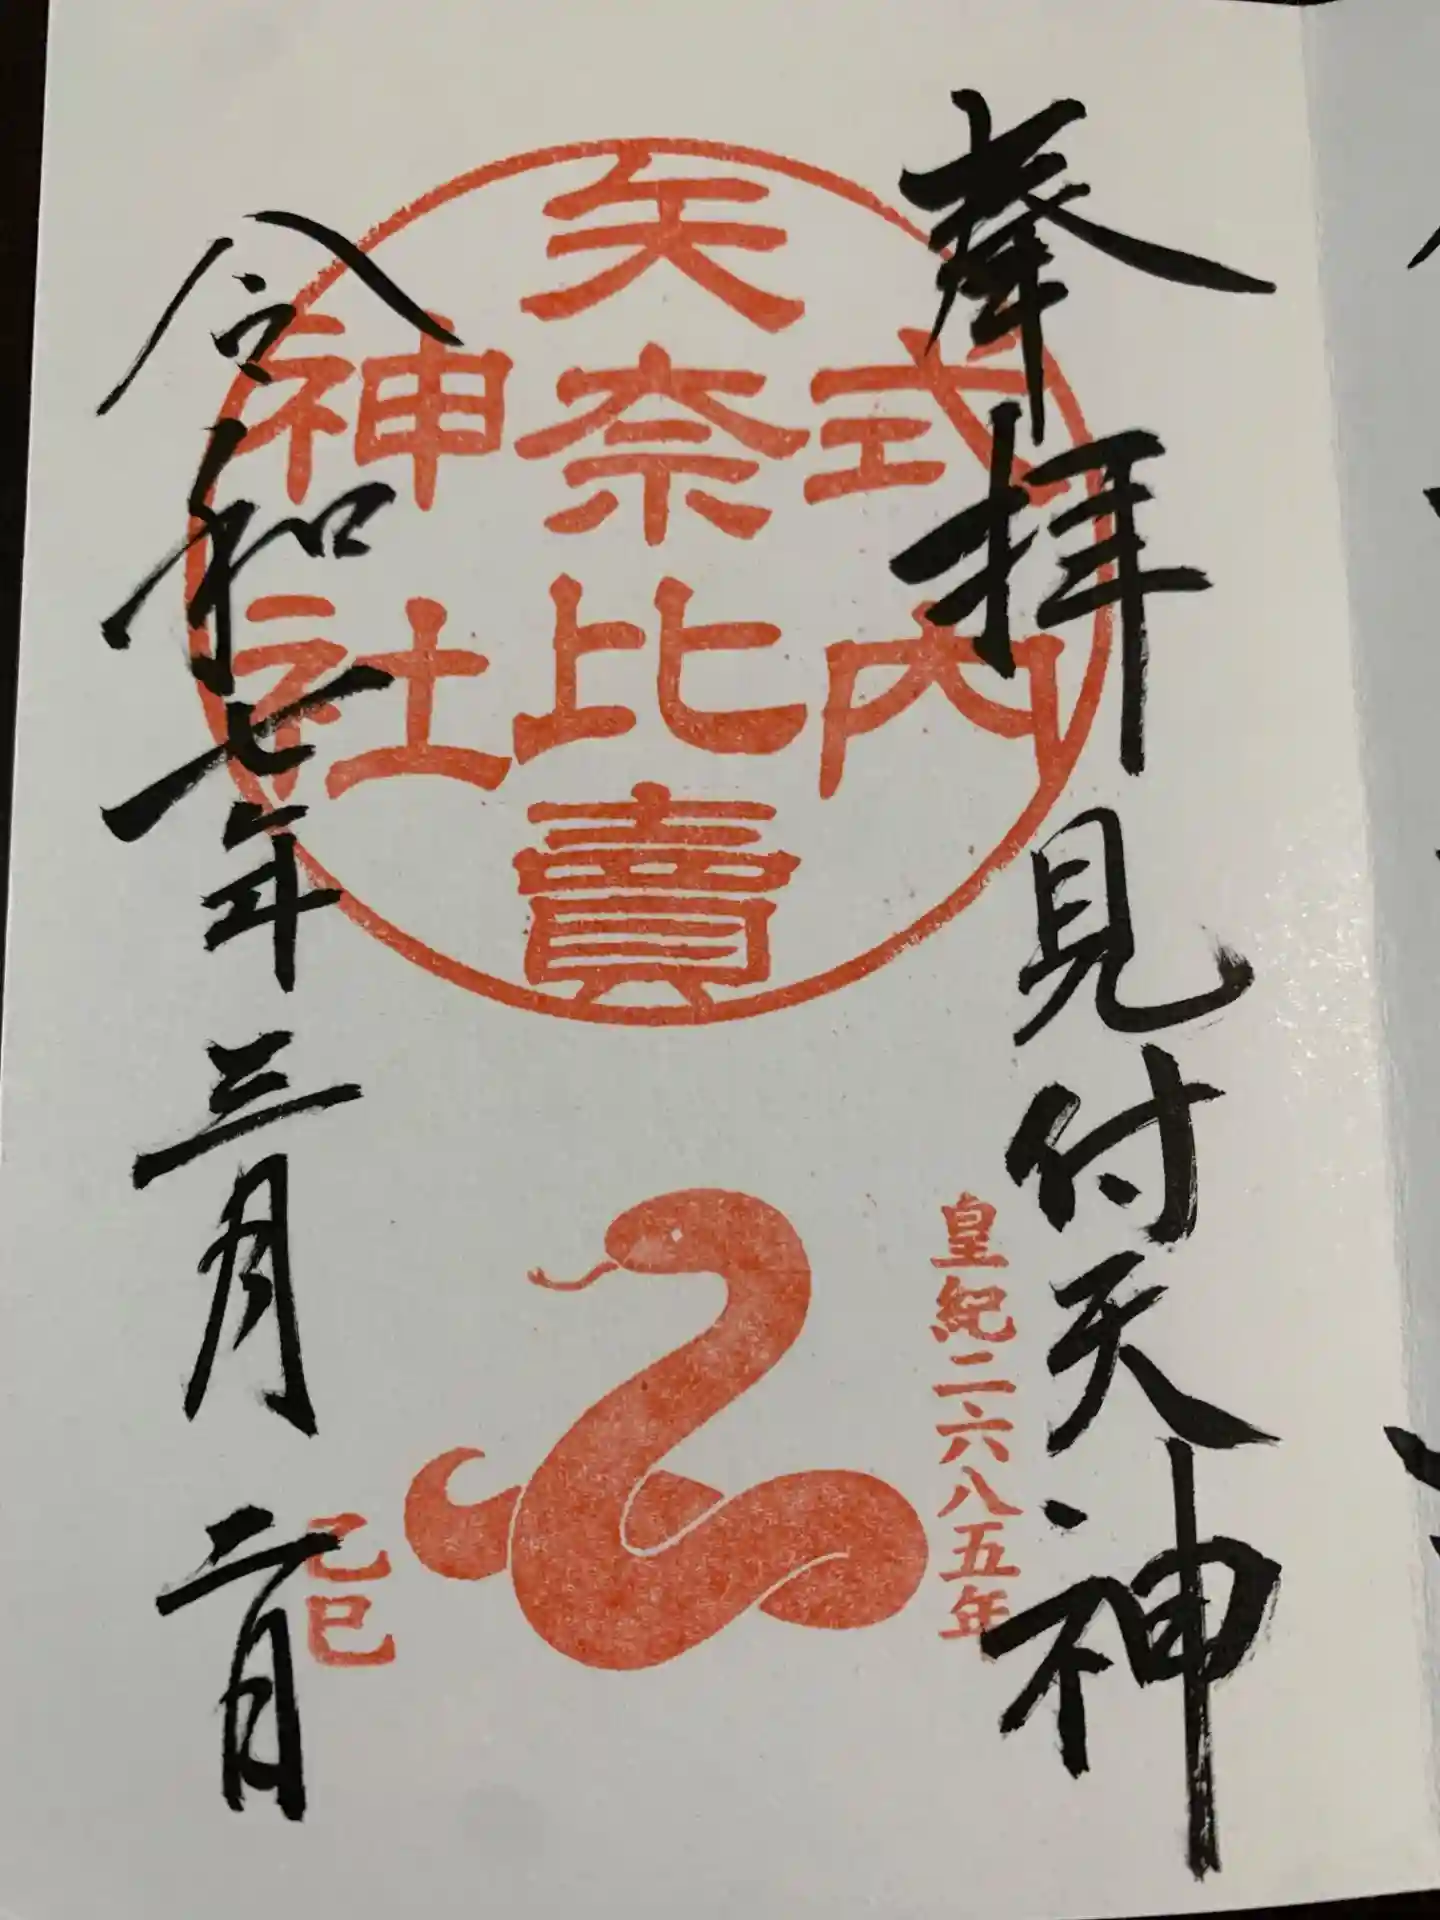 奉拝 見付天神
皇紀二六八五年
式内
矢奈比賣
神社
己巳
令和七年三月二日